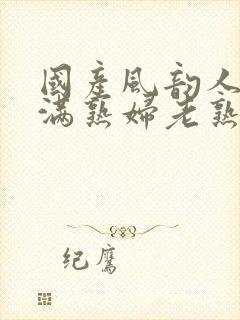 國產風韵人
滿熟婦老熟
纪鹰